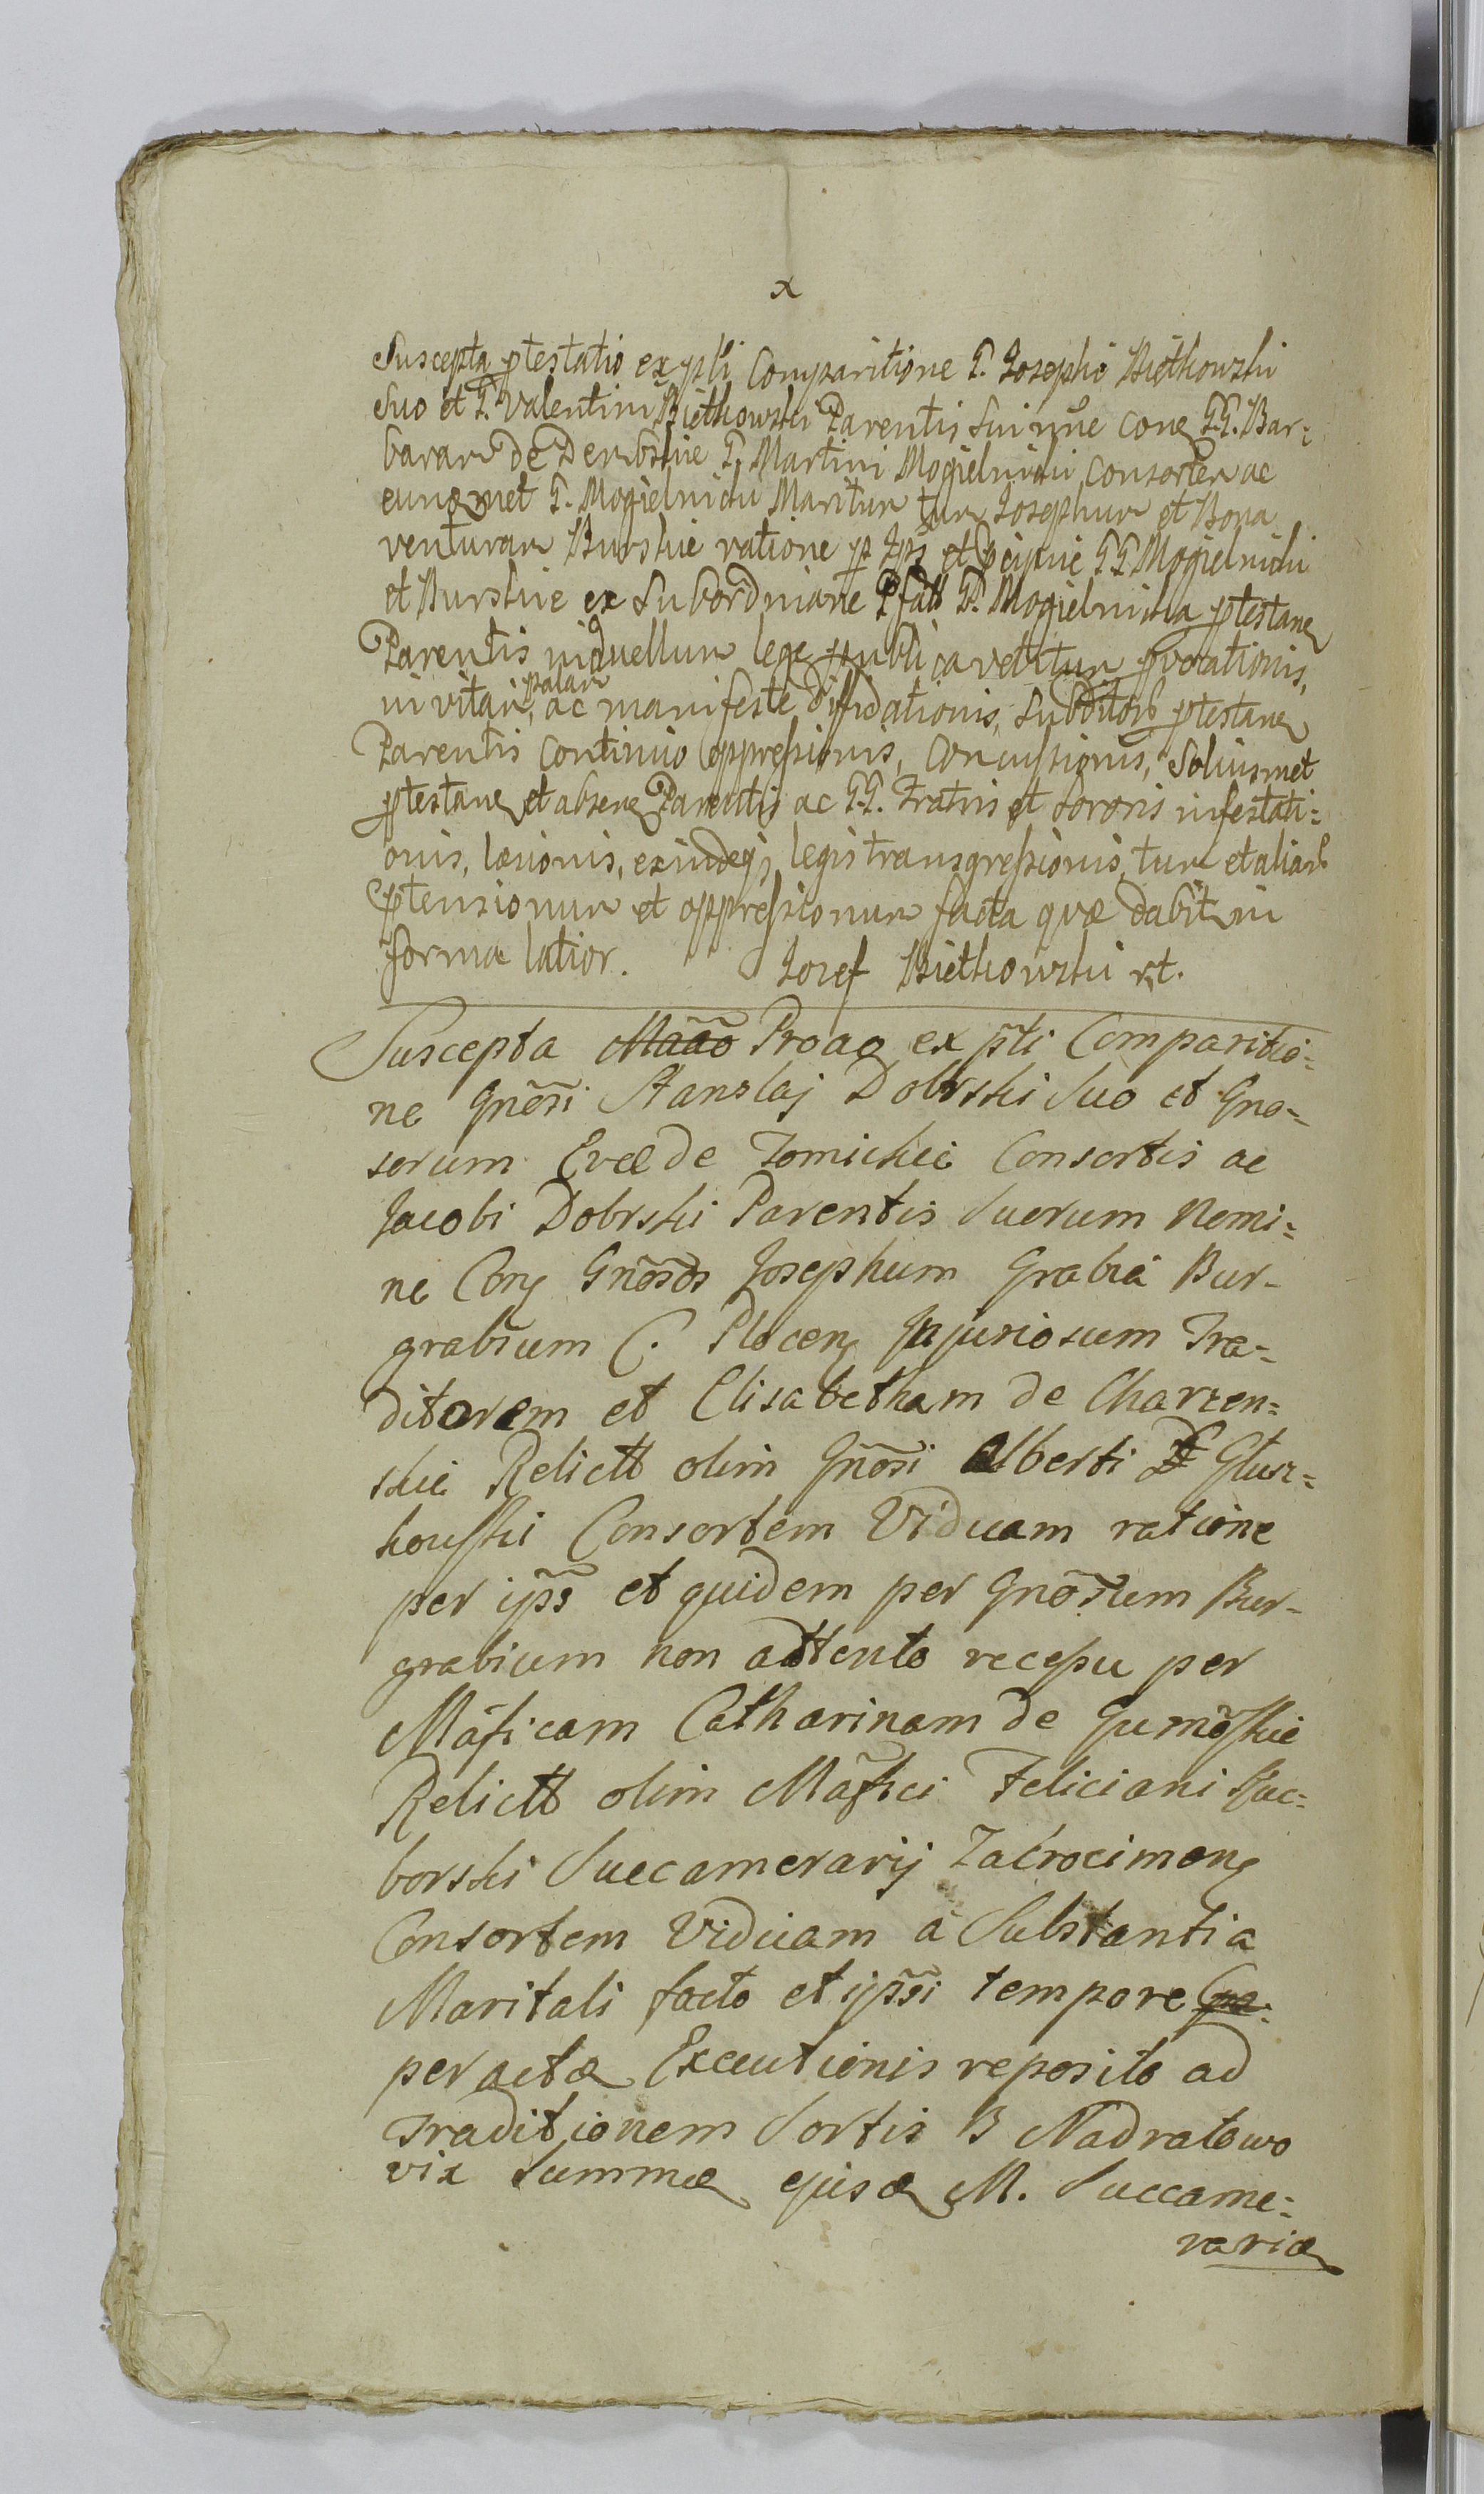 x
Suscepta ptestatio ex psti Comparitione G. Josephi Biethowski
Suo et G. Valentini Biethowski Parentis Sui nñe cong GG. Bar=
baram de Dembskie G. Martini Mogielnicki consortem ac
eundmet G. Mogielnicki Maritum tum Josephum et Bona
venturam Burskie ratione p Ips et pcipue GG Mogielnicki
et Burskie ex Subordinane Pfatt G. Mogielnicka ptestang
Parentis in duellum lege publica vetitum pvocationis,
invitam, palam ac manifeste diffidationis, Subditorb ptestang
Parentis continuo oppressionis, concussionis, Soliusmet
ptestang et abseng Parentis ac GG. Fratris et Sororis infestati=
onis, læsionis, exindeqs legis transgressionis, tum et aliarb
ptensionum et oppressionum facta quæ dabit in
forma latior. Josef Biethowski rt.
Suscepta Mãão Proao ex psti Comparitio=
ne Gnõsi Stanslaj Dobrski Suo et Gno=
sorum Evæ de Tomickie Consortis ac
Jacobi Dobrski Parentis Suorum Nomi=
ne Cong Gnõsos Josephum Grabia Bur-
grabium C. Ploceng Injuriosum Tra=
ditorem et Elisabetham de Charzen=
skie Relictt olim Gnõsi Alberti Glusz=
kouski Consortem Viduam ratione
per ips et quidem per Gnõsum Bur-
grabium non attento recessu per
Mãficam Catharinam de Gumoskie
Relictt olim Mãfici Feliciani Rac=
borski Succamerarij Zakrocimeng
Consortem Viduam a Substantia
Maritali facto et ipsi tempore
peractæ Executionis reposito ad
Traditionem Sortis B Nadratowo
vix Summæ ejusd M. Succame=
rariæ